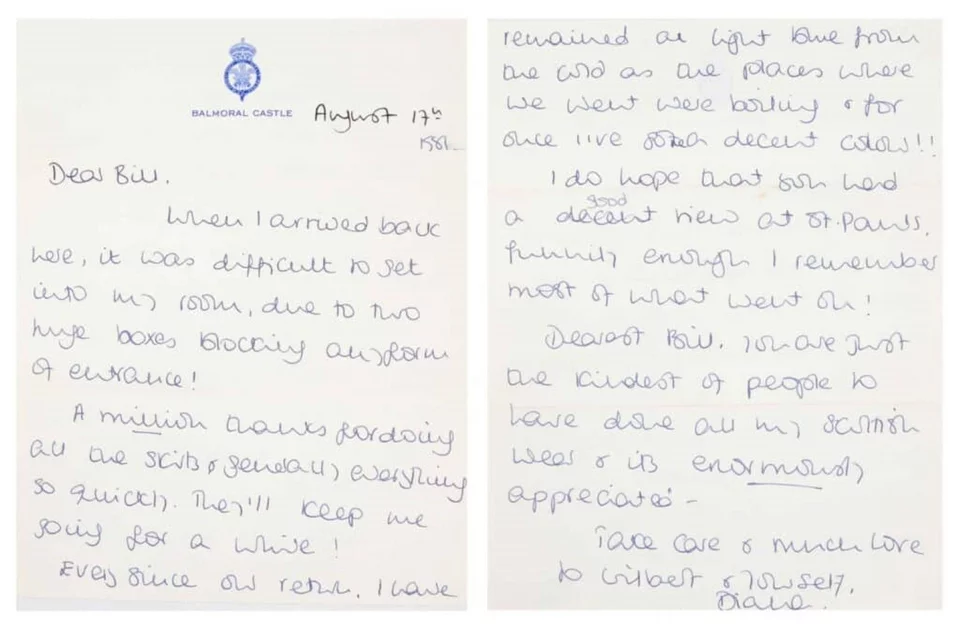 BALMORAL CASTLE
August 17th
1981.
Dear Bill.
When I arrived back
here, it was difficult to get
into my room, due to two
huge boxes blocking any form
of entrance!
A million thanks for doing
all the skirts & generally everything
so quickly. They'll keep me
going for a while!
Ever since our return, I have
remained a light blue from
the cold as the places where
we went were boiling & for
once I've a decent colour!!
I do hope that you had
good
a decent view at St. Pauls,
funnily enough I remember
most of what went on!
Dearest Bill, you are just
the kindest of people to
have done all my Scottish
wear & its enormously
appreciated -
Take care & much love
to Wilbert & yourself,
Diana.